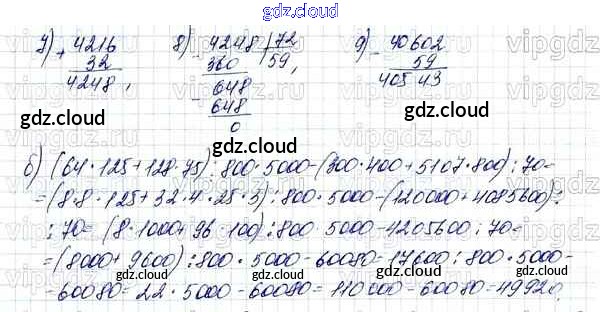 gdz.cloud
7) + 4216
32
4248,
8) - 4248 | 72
360 59,
- 648
648
0
9) - 40602
59
40543
gdz.cloud
gdz.cloud
gdz.cloud
б) (64·125+128·75):800·5000-(300·400+5107·800):70=
=(8·8·125+32·4·25·3):800·5000-(120000+4085600):
:70=(8·1000+96·100):800·5000-4205600:70=
=(8000+9600):800·5000-60080=17600:800·5000-
-60080=22·5000-60080=110000-60080=49920,
gdz.cloud
gdz.cloud
gdz.cloud